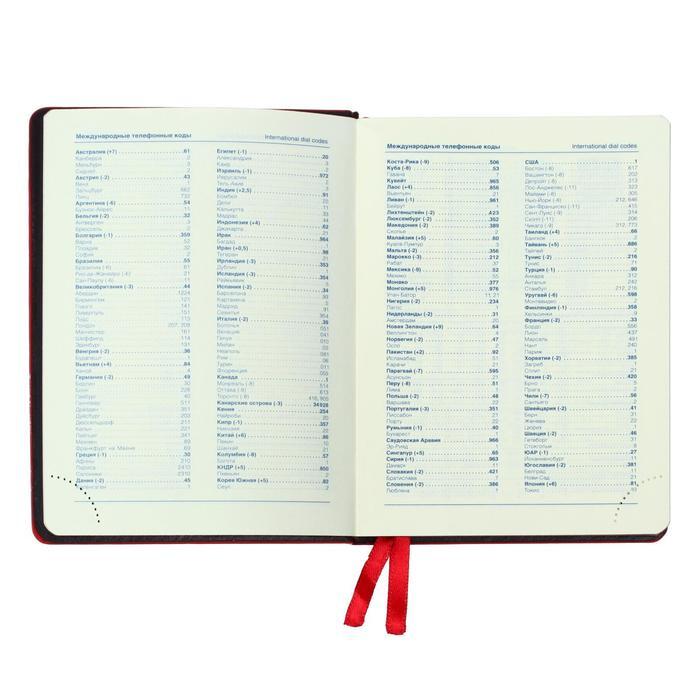 Международные телефонные коды International dial codes
Австралия (+7) 61
Канберра 2
Мельбурн 3
Сидней 2
Австрия (-2) 43
Вена
Зальцбург 662
Линц 732
Аргентина (-6) 54
Буэнос-Айрес 11
Бельгия (-2) 32
Антверпен 3
Брюссель 2
Болгария (-1) 359
Варна 52
Пловдив 32
София 2
Бразилия 55
Бразилиа (-6) 61
Рио-де-Жанейро (-4) 21
Сан-Паулу (-6) 11
Великобритания (-3) 44
Абердин 1224
Бирмингем 121
Глазго 141
Ливерпуль 151
Лидс 113
Лондон 207, 208
Манчестер 161
Шеффилд 114
Эдинбург 131
Венгрия (-2) 36
Будапешт 1
Вьетнам (+4) 84
Ханой 4
Германия (-2) 49
Берлин 30
Бонн 228
Гамбург 40
Ганновер 511
Дрезден 351
Дуйсбург 203
Дюссельдорф 211
Кельн 221
Лейпциг 341
Мюнхен 89
Франкфурт на Майне 69
Греция (-1) 30
Афины 210
Лариса 2410
Салоники 2310
Дания (-2) 45
Копенгаген
Египет (-1) 20
Александрия 3
Каир 2
Израиль (-1) 972
Иерусалим 2
Тель-Авив 3
Индия (+2,5) 91
Бомбей 22
Дели 11
Калькутта 33
Мадрас 44
Индонезия (+4) 62
Джакарта 21
Ирак 964
Багдад 1
Иран (+0,5) 98
Тегеран 21
Ирландия (-3) 353
Дублин 1
Исландия (-3) 354
Рейкьявик
Испания (-2) 34
Барселона
Картахена
Мадрид
Севилья
Италия (-2) 39
Болонья 051
Венеция 041
Генуя 010
Милан 02
Неаполь 081
Рим 06
Турин 011
Флоренция 055
Канада 1
Монреаль (-8) 514
Оттава (-8) 613
Торонто (-8) 416, 905
Канарские острова (-3) 34928
Кения 254
Найроби 20
Кипр (-1) 357
Никосия 22
Китай (+6) 86
Пекин 10
Шанхай 21
Колумбия (-8) 57
Богота 1
КНДР (+5) 850
Пхеньян 2
Корея Южная (+5) 82
Сеул 2
Международные телефонные коды International dial codes
Коста-Рика (-9) 506
Куба (-8) 53
Гавана 7
Кувейт 965
Лаос (+4) 856
Вьентьян 21
Ливан (-1) 961
Бейрут 1
Лихтенштейн (-2) 423
Люксембург (-2) 352
Македония (-2) 389
Скопье 2
Малайзия (+5) 60
Куала-Лумпур 3
Мальта (-2) 356
Марокко (-3) 212
Рабат 37
Мексика (-9) 52
Мехико 55
Монако 377
Монголия (+5) 976
Улан-Батор 11, 21
Нигерия (-2) 234
Лагос 1
Нидерланды (-2) 31
Амстердам 20
Новая Зеландия (+9) 64
Веллингтон 4
Норвегия (-2) 47
Осло 2
Пакистан (+2) 92
Исламабад 51
Карачи 21
Парагвай (-7) 595
Асунсьон 21
Перу (-8) 51
Лима 1
Польша (-2) 48
Варшава 22
Португалия (-3) 351
Лиссабон 21
Порту 22
Румыния (-1) 40
Бухарест
Саудовская Аравия 966
Эр-Рияд 1
Сингапур (+5) 65
Сирия (-1) 963
Дамаск 11
Словакия (-2) 421
Братислава 7
Словения (-2) 386
Любляна 1
США 1
Бостон (-8) 617
Вашингтон (-8) 202
Детройт (-8) 313
Лос-Анджелес (-11) 323
Майями (-8) 305
Нью-Йорк (-8) 212, 646
Сан-Франциско (-11) 415
Сент-Луис (-9) 314
Сиэтл (-11) 206
Чикаго (-9) 312, 773
Таиланд (+4) 66
Бангкок 2
Тайвань (+5) 886
Тайбэй 2
Тунис (-2) 216
Тунис 71
Турция (-1) 90
Анкара 312
Анталья 242
Стамбул 212, 216
Уругвай (-6) 598
Монтевидео 2
Финляндия (-1) 358
Хельсинки 9
Франция (-2) 33
Бордо 556
Лион 437
Марсель 491
Нант 240
Париж 1
Хорватия (-2) 385
Загреб 1
Сплит 21
Чехия (-2) 420
Брно 5
Прага 2
Чили (-7) 56
Сантьяго 2
Швейцария (-2) 41
Берн 31
Женева 22
Цюрих 1
Швеция (-2) 46
Гетеборг 31
Стокгольм 8
ЮАР (-1) 27
Йоханнесбург 11
Югославия (-2) 381
Белград 11
Нови-Сад 21
Япония (+6) 81
Токио